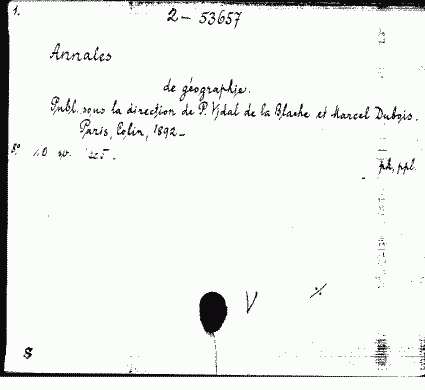 1.
2 - 53657
Annales
de géographie.
Publ. sous la direction de P. Vidal de la Blache et Marcel Dubois.
Paris, Colin, 1892 -
8°
pk, ppl.
V
%
S